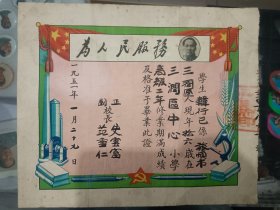 為人民服務
學生韓行已係
三澗區人現年拾六歲在
三澗區中心小學
高級二年修業期滿成績
及格准予畢業此證
正
副校長
史雲富
范靈仁
一九五一年一月二十九日